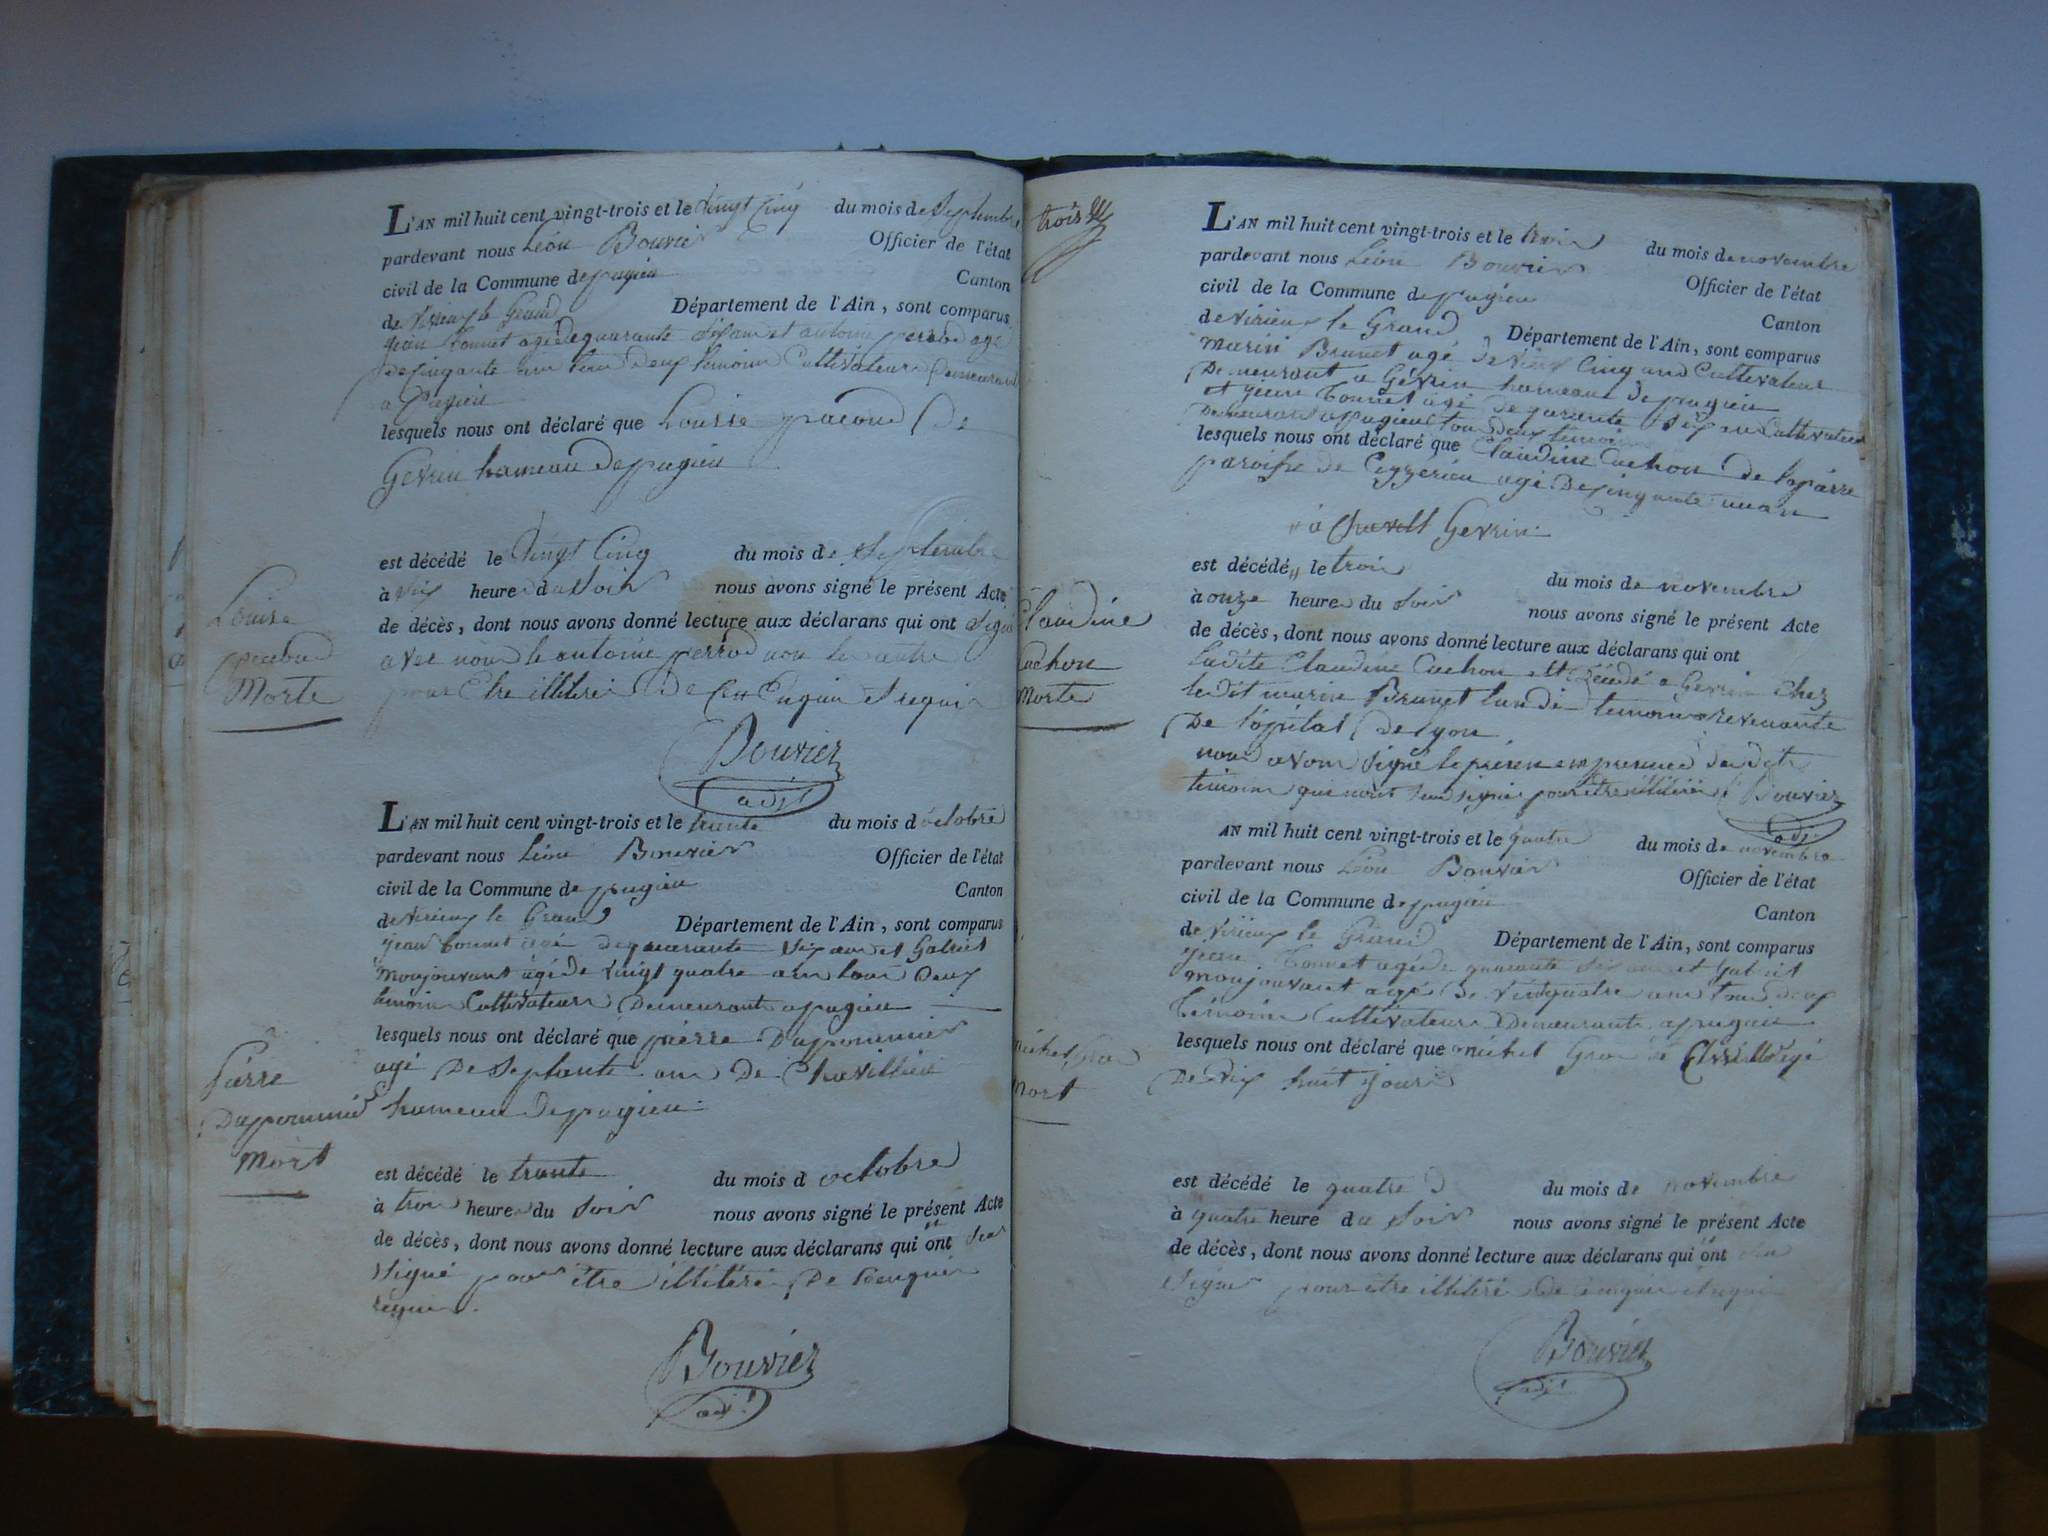 L'AN mil huit cent vingt-trois et le vingt Cinq du mois de Septembre
pardevant nous Léon Bouvier Officier de l'état
civil de la Commune de pugieu Canton
de Virieu le Grand Département de l'Ain, sont comparus
jean tonnet agé de quarante six ans et antoine perrod agé
de cinqante un tous deux temoin Cultivateurs Demeurant
a Pugieu
lesquels nous ont déclaré que Louise pacoud De
Gevrin hameau de pugieu
est décédé le Vingt Cinq du mois de Septembre
à six heure du soir nous avons signé le présent Acte
de décès, dont nous avons donné lecture aux déclarans qui ont signé
avec nous le antoine perrod non le autre
pour Etre illiteré De Ce Enquis et requis
Bouvier
adjt
Louise
pacoud
Morte
L'AN mil huit cent vingt-trois et le trante du mois d octobre
pardevant nous Léon Bouvier Officier de l'état
civil de la Commune de pugieu Canton
de Virieu le Grand Département de l'Ain, sont comparus
jean tonnet agé de quarante six ans et Gabriel
Monjouvant agé de vingt quatre ans tous Deux
temoin Cultivateurs Demeurant a pugieu
lesquels nous ont déclaré que piérre Duponnier
agé De Septante ans De Chavillieu
hameau de pugieu
est décédé le trante du mois d octobre
à trois heure du soir nous avons signé le présent Acte
de décès, dont nous avons donné lecture aux déclarans qui ont
Signé pour être illitéré De Enquis
requis.
Bouvier
adjt
Piérre
Duponnier
Mort
trois
L'AN mil huit cent vingt-trois et le trois du mois de novembre
pardevant nous Léon Bouvier Officier de l'état
civil de la Commune de pugieu Canton
de Virieu le Grand Département de l'Ain, sont comparus
Marin Brunet agé de vingt Cinq ans Cultivateur
Demeurant a Gévrin hameau de pugieu
et jean tonnet agé de qarante six ans Cultivateur
Demeurant a pugieu tous deux temoin
lesquels nous ont déclaré que Claudine Cuchon de
paroisse de Ceyzerieu agé De cinqante un an
à Gevrin
est décédé, le trois du mois de novembre
à onze heure du soir nous avons signé le présent Acte
de décès, dont nous avons donné lecture aux déclarans qui ont
Ladite Claudine Cuchon est décédé a Gevrin chez
ledit marin Brunet temoin revenante
De l'opital de Lyon
nous avons signé le présen en presence des dits
temoin qui nont signé pour être illitéré Bouvier
adjt
Claudine
Cuchon
Morte
AN mil huit cent vingt-trois et le quatre du mois de novembre
pardevant nous Léon Bouvier Officier de l'état
civil de la Commune de pugieu Canton
de Virieu le Grand Département de l'Ain, sont comparus
jean tonnet agé de quarante six ans et Gabriel
monjouvant agé De vintquatre ans tous deux
témoin Cultivateurs Demeurant a pugieu
lesquels nous ont déclaré que michel agé
De dix huit jours
est décédé le quatre du mois de novembre
à quatre heure du soir nous avons signé le présent Acte
de décès, dont nous avons donné lecture aux déclarans qui ont
signé pour être illitéré De enquis et requis
Bouvier
adjt
michel
Mort